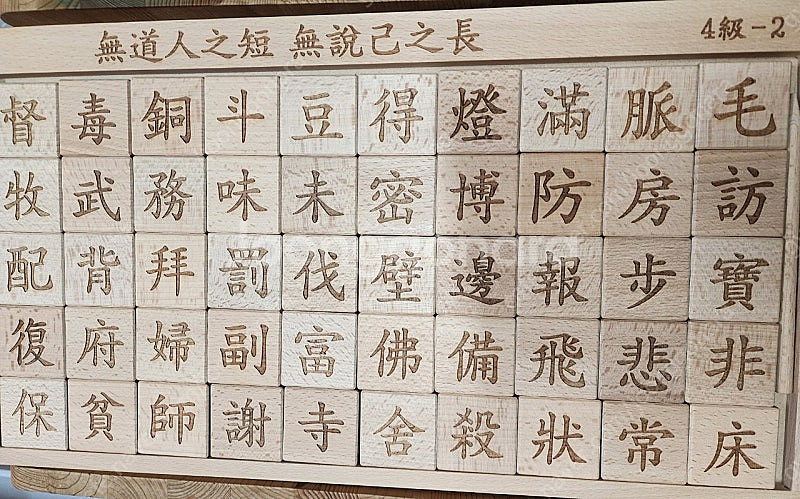 無道人之短 無說己之長 4級-2
督毒銅斗豆得燈滿脈毛
牧武務味未密博防房訪
配背拜罰伐壁邊報步寶
復府婦副富佛備飛悲非
保貧師謝寺舍殺狀常床